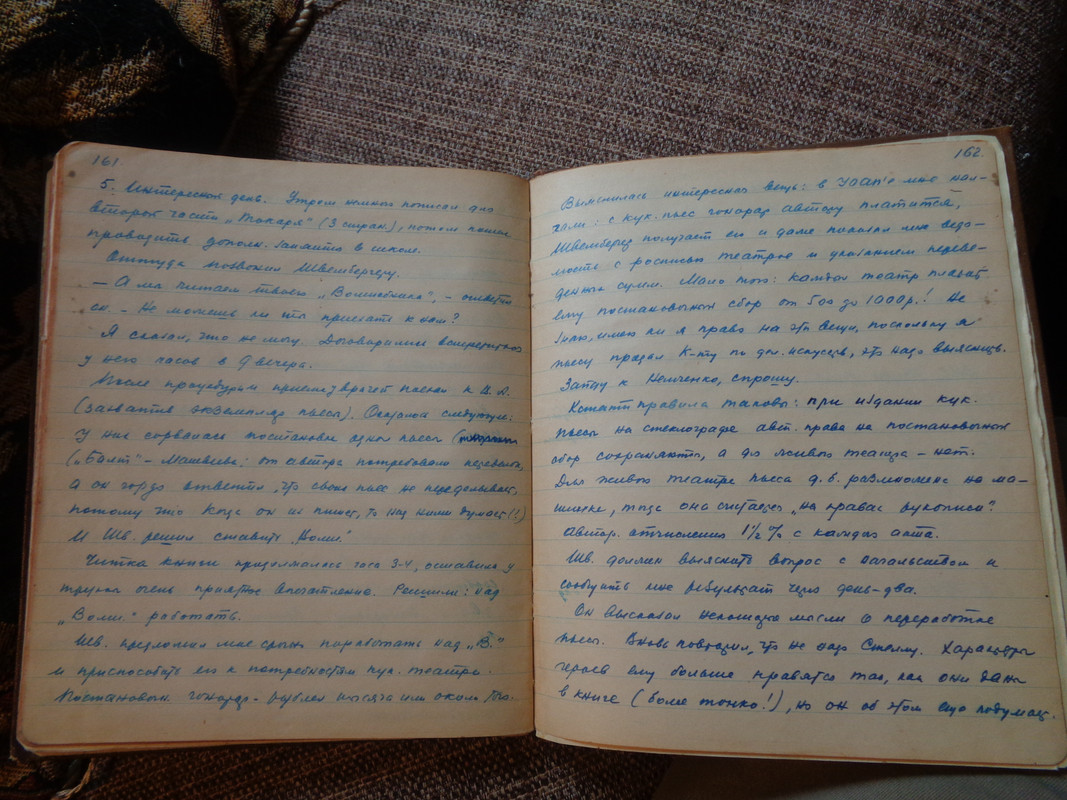 161.
5. Интересный день. Утром немного пописал для
второй части „Токаря“ (3 стран.), потом пошел
проводить дополн. занятия в школе.
Оттуда позвонил Швембергеру.
— А мы читаем твоего „Волшебника“, – ответил
он. – Не можешь ли ты приехать к нам?
Я сказал, что не могу. Договорились встретиться
у него часов в 9 вечера.
После процедуры приема у врачей поехал к В. А.
(захватив экземпляр пьесы). Оказалось следующее.
У них сорвалась постановка одной пьесы
(„Балт“ – Матвеева; от автора потребовали переделки,
а он гордо ответил, что своих пьес не переделывает,
потому что когда он их пишет, то над ними думает (!)
И Шв. решил ставить „Волш.“
Читка книги продолжалась часа 3-4, оставила у
труппы очень приятное впечатление. Решили: над
„Волш.“ работать.
Шв. предложил мне срочно поработать над „В.“
и приспособить его к потребностям кук. театра.
Постановочн. гонорар – рублей тысяча или около того.
162.
Выяснилась интересная вещь: в УОАП'е мне нах-
хали: с кук. пьес гонорар автору платится,
Швембергер получает его и даже показал мне ведо-
мость с росписью театров и указанием переве-
денных сумм. Мало того: каждый театр платит
ему постановочный сбор от 500 до 1000 р.! Не
знаю, имею ли я право на эти вещи, поскольку я
пьесу продал К-ту по дел. искусств, это надо выяснить.
Зайду к Немченко, спрошу.
Кстати правила таковы: при издании кук.
пьесы на стеклографе авт. права на постановочный
сбор сохраняются, а для живого театра – нет.
Для живого театра пьеса д. б. размножена на ма-
шинке, тогда она считается „на правах рукописи“
Автор. отчисления 1½ % с каждого акта.
Шв. должен выяснить вопрос с начальством и
сообщить мне результат через день-два.
Он высказал несколько мысли о переработке
пьесы. Вновь повторил, что не надо Стеллу. Характеры
героев ему больше нравятся так, как они даны
в книге (более тонко!), но он об этом еще подумает.